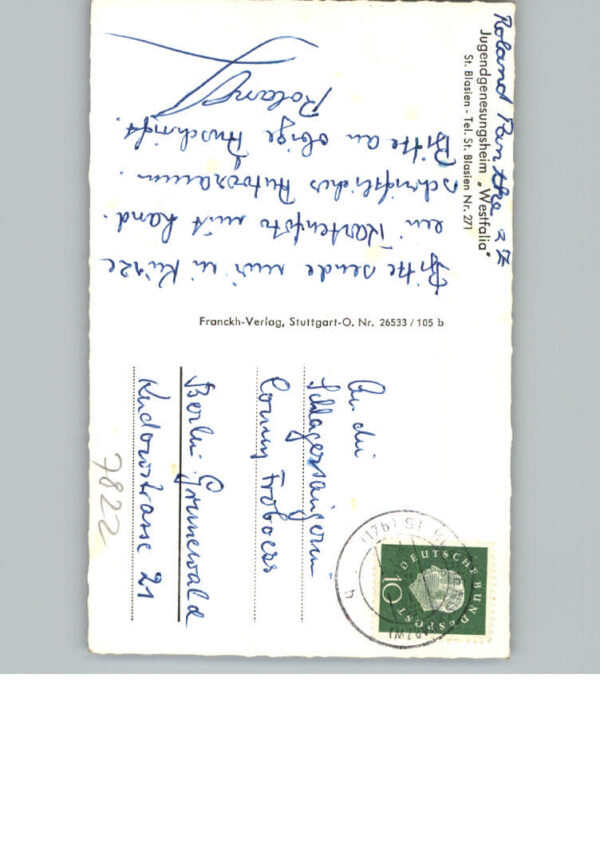 Roland Panthe z Zt
Jugendgenesungsheim „Westfalia"
St. Blasien - Tel. St. Blasien Nr. 271
Bitte sende mir in Kürze
ein Kartenfoto mit hand.
schriftliches Autogramm.
Bitte an obige Anschrift.
Roland
Franckh-Verlag, Stuttgart-O. Nr. 26533 / 105 b
An die
Schlagersängerin
Conny Froboess
Berlin-Grunewald
Kudowastrasse 21
7822
(17b) ST.
h
DEUTSCHE BUNDESPOST
10